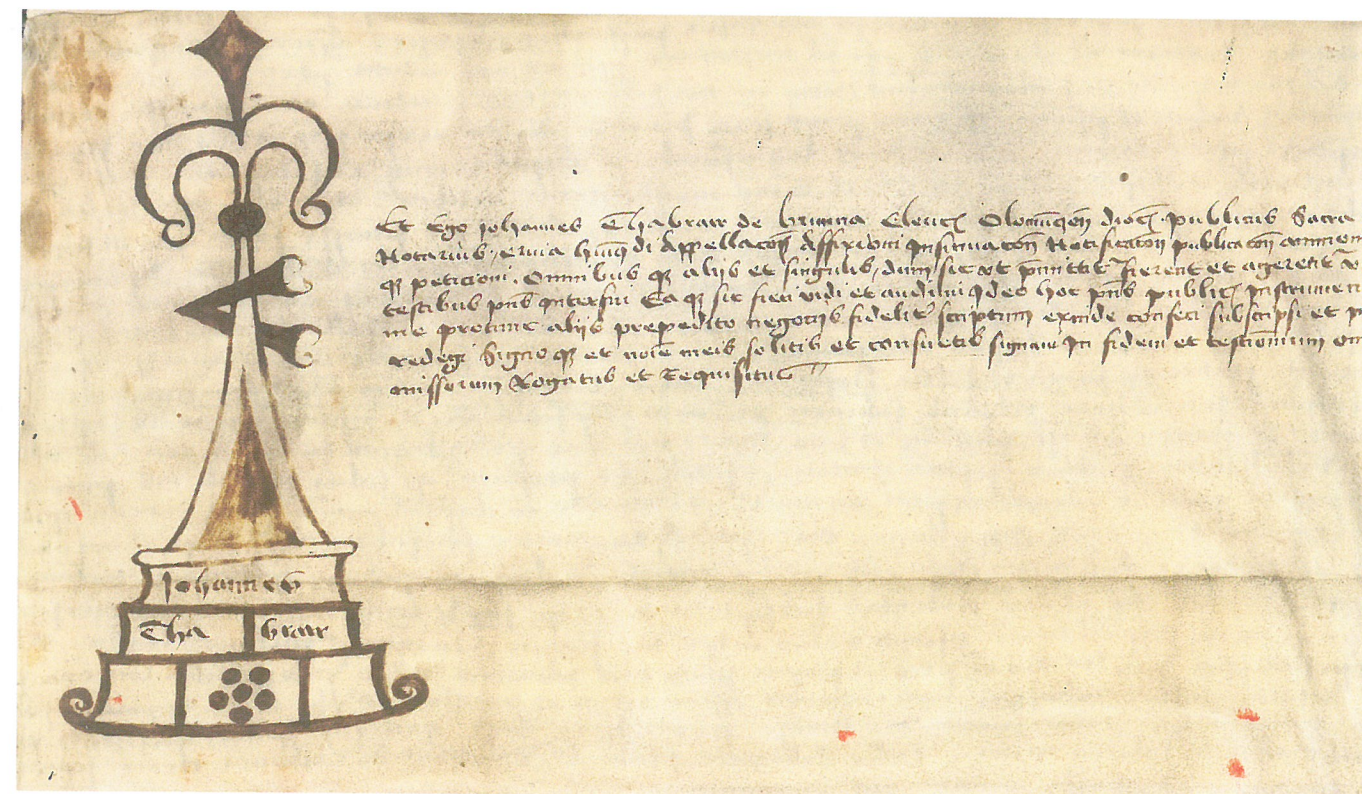 Et Ego Johannes Thabrar de brunna Cleric9 Olomucen dioc9 publicus Sacra
Notarius, quia appellacoi Affixioni Insinuacoi Notificacoi publicacoi
qz peticioni. Omnibus qz alijs et singulis, dum sic vt fierent et agerent
testibus pns interfui Ea qz sic fieri vidi et audiui Ideo hoc pns public9 Instrumen
me protunc alijs prepedito negocijs fidelit scriptum exinde confeci subscripsi et p
redegi Signo qz et noie meis solitis et consuetis signaui In fidem et testimonium om
missorum Rogatus et Requisitus
Johannes
Tha brar